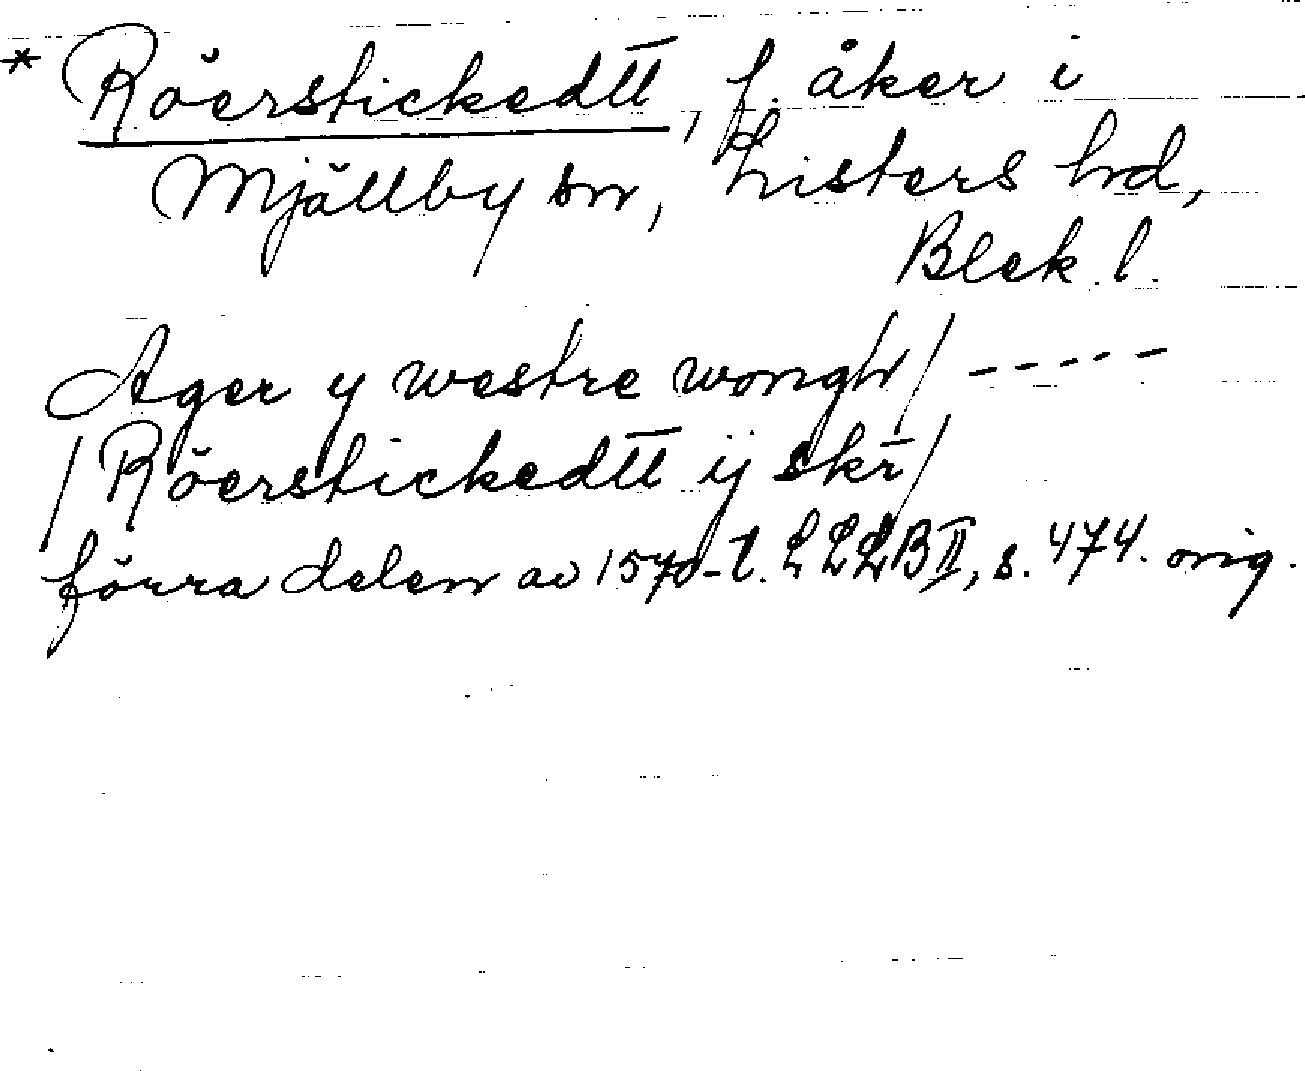 * Röerstickedtt, f. åker i
Mjällby sn, Listers hd,
Blek. l.
Ager y westre wongh/ -----
/Röerstickedtt ij skr̄/
förra delen av 1570-t. LLLB II, s. 474. orig.